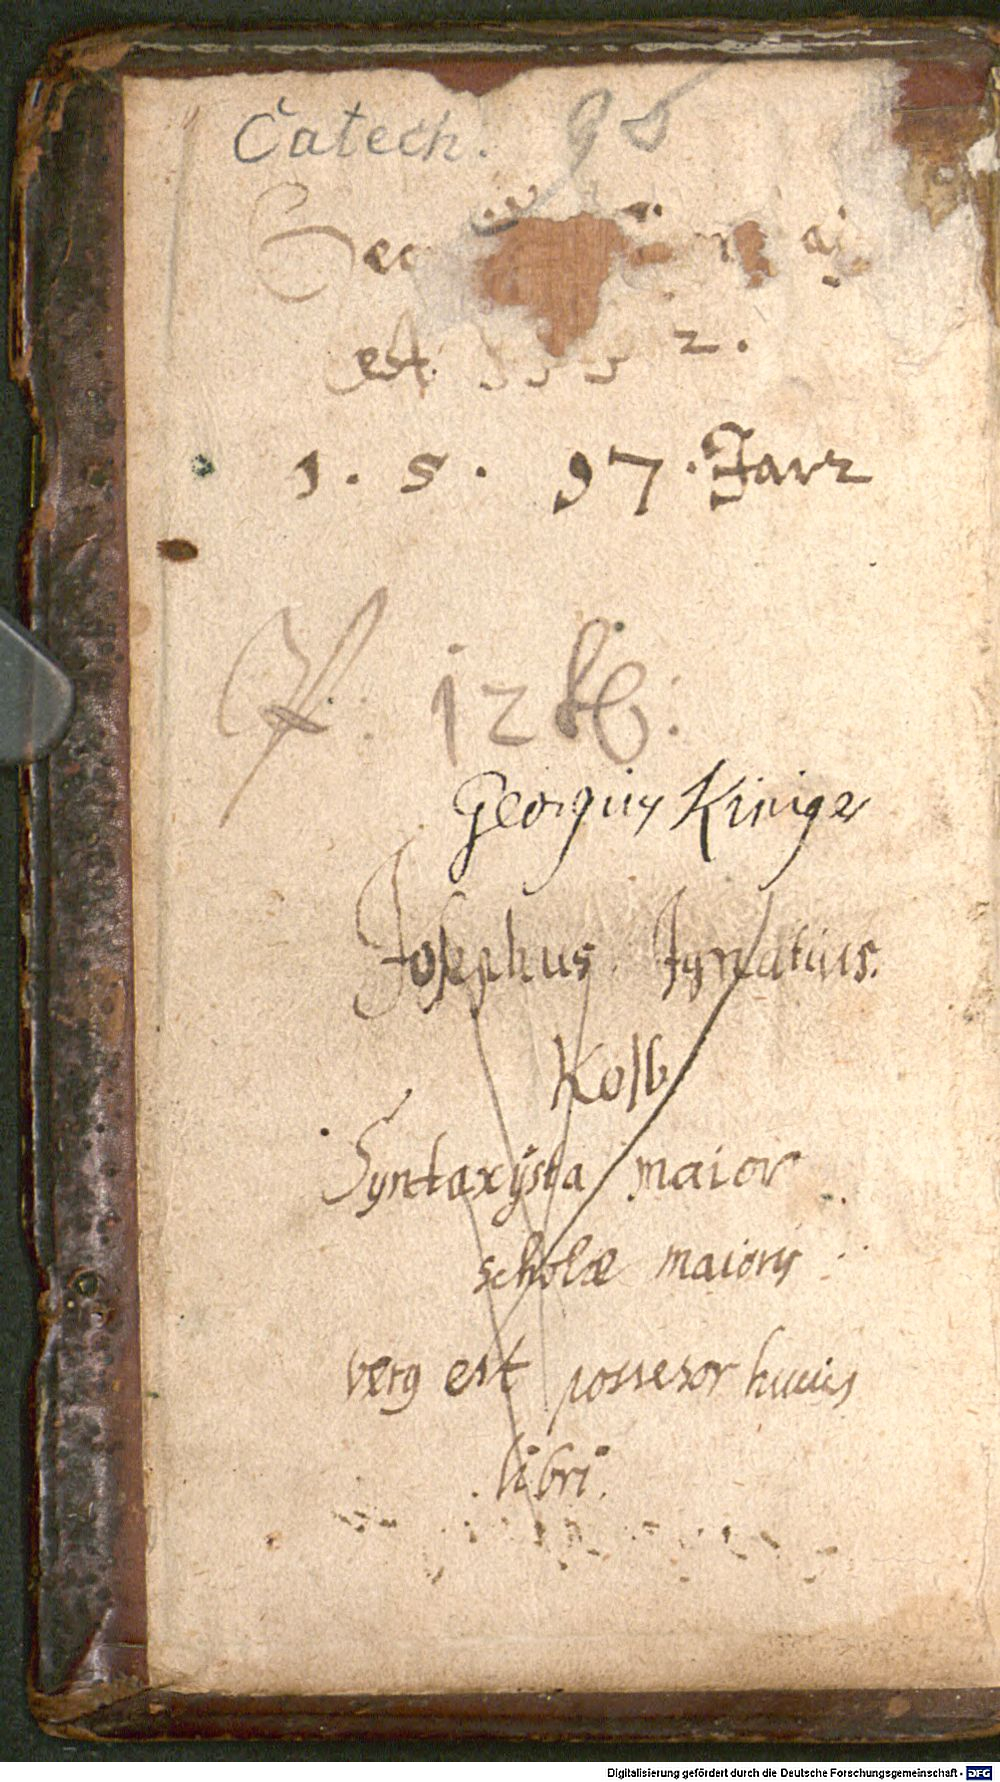 Catech. 95
est
1. 5. 97. Jarr
12 kr:
Georgius Kiniger
Josephus Ignatius.
Kolb
Syntaxÿsta maior
scholæ maioris
verg est possesor huuis
libri.
Digitalisierung gefördert durch die Deutsche Forschungsgemeinschaft - DFG